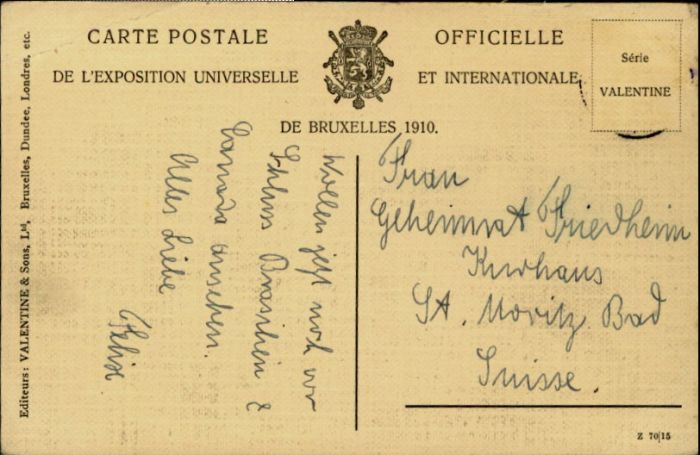 CARTE POSTALE OFFICIELLE
DE L'EXPOSITION UNIVERSELLE ET INTERNATIONALE
DE BRUXELLES 1910.
Série
VALENTINE
Editeurs: VALENTINE & Sons, Ltd, Bruxelles, Dundee, Londres, etc.
Wollen jetzt noch vor
Schluss Brasilien &
Canada ansehen.
Alles Liebe
Felix
Frau
Geheimrat Friedheim
Kurhaus
St. Moritz Bad
Suisse.
Z 70/15